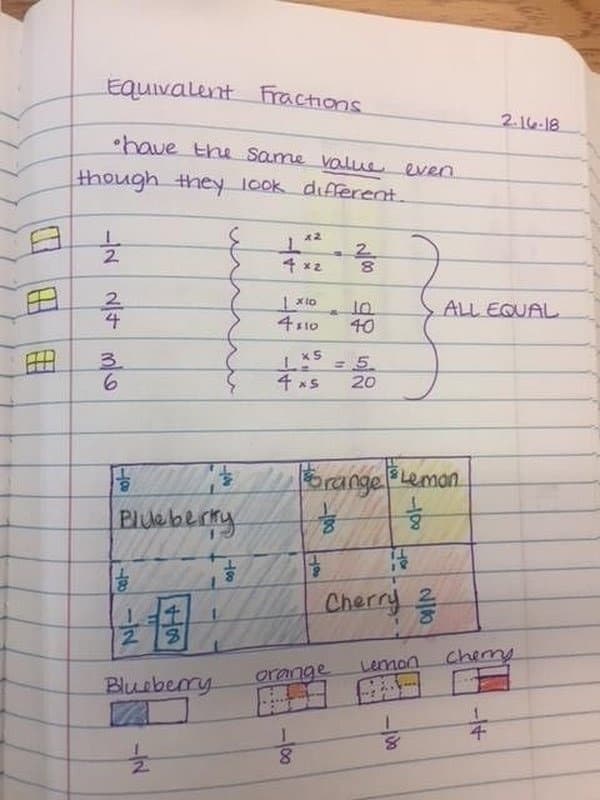 Equivalent Fractions
2.16.18
•have the same value even
though they look different.
1/2
1 x2 / 4 x2 = 2/8
2/4
1 x10 / 4 x10 = 10/40
ALL EQUAL
3/6
1 x5 / 4 x5 = 5/20
1/8 1/8 1/8 1/8
Orange Lemon
Blueberry 1/8 1/8
1/8 1/8 1/8 1/8
1/2 = 4/8 Cherry 2/8
Blueberry orange Lemon cherry
1/2 1/8 1/8 1/4